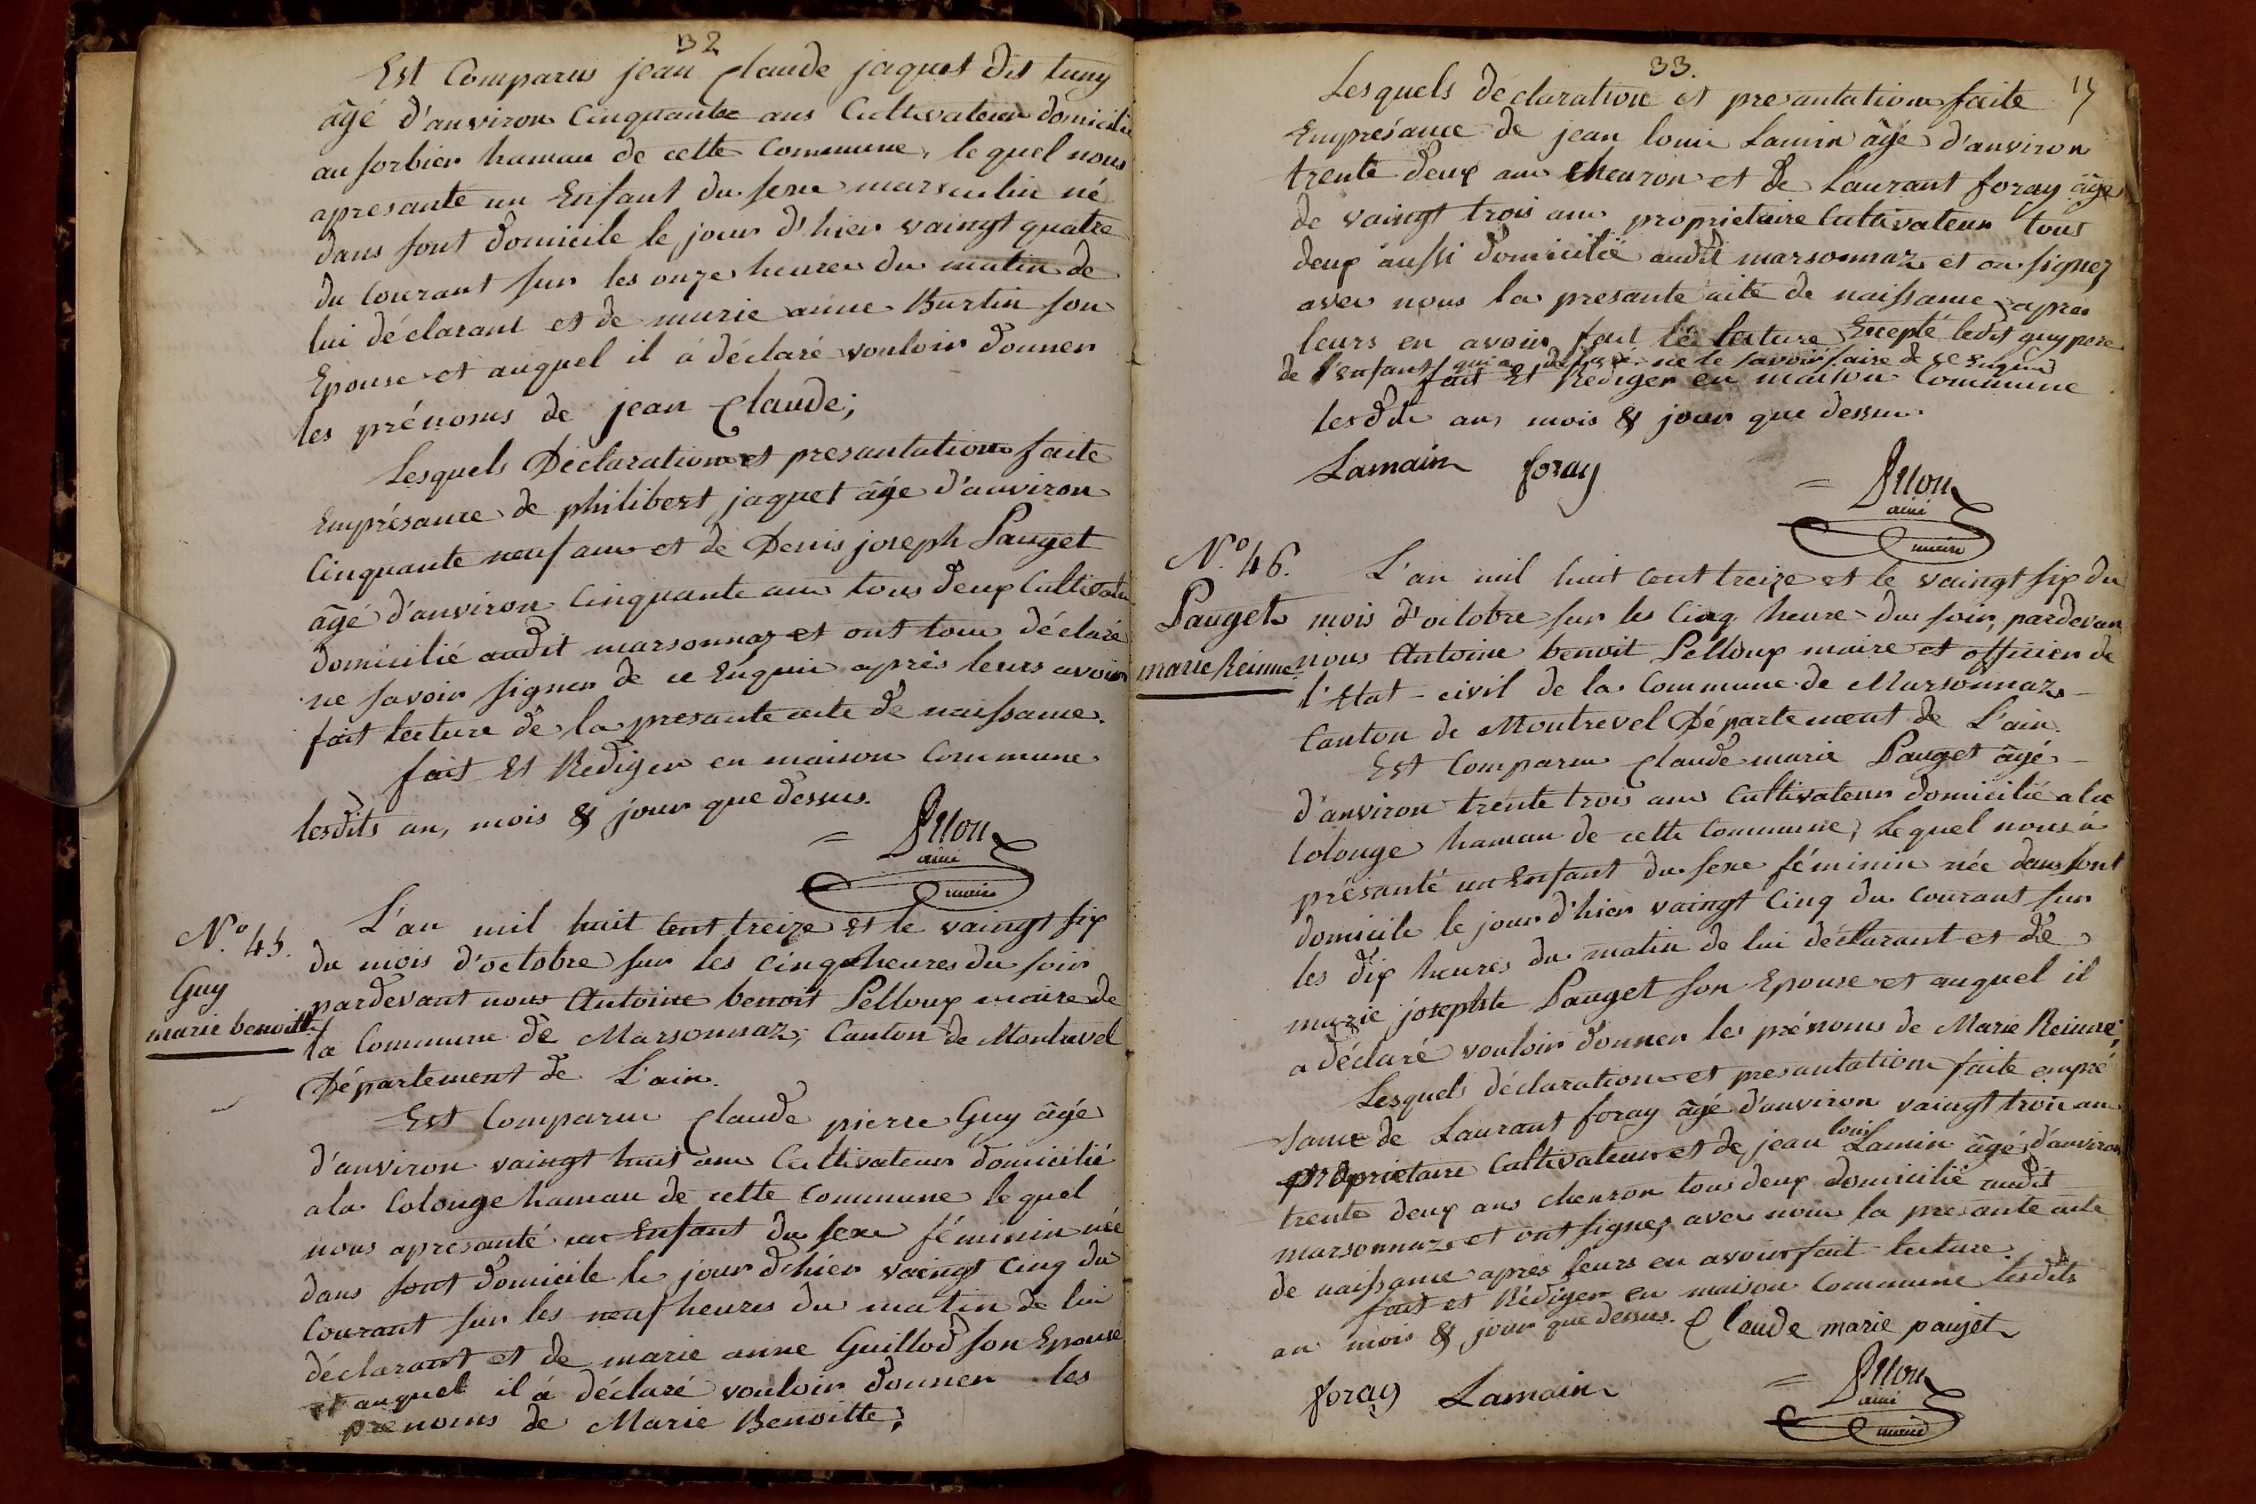 32
Est Comparus jean Claude jaquet dit tuny
âgé d'anviron Cinquante ans Cultivateur domicilié
au sorbier hamau de cette Commune, le quel nous
apresanté un Enfant du sexe masculin né
dans sont domicile le jour d'hier vaingt quatre
du Courant sur les onze heures du matin de
lui déclarant et de marie anne Burtin son
Epouse et auquel il á déclaré vouloir donner
les prénoms de jean Claude;
Lesquels Déclaration et presantation faite
Emprésance de philibert jaquet âgé d'anviron
Cinquante neuf ans et de Denis joseph Pauget
âgé d'anviron Cinquante ans tous deux Cultivateur
domicilié audit marsonnaz et ont tous déclaré
ne savoir signer de ce Enquis après leurs avoir
fait lecture de la presante acte de naissance.
fait Et Rediger en maison Commune
lesdits an, mois & jour que dessus.
ainé
maire
N.° 45.
Guy
marie benoitte
L'an mil huit Cent treize et le vaingt six
du mois d'octobre sur les cinq heures du soir
pardevant nous Antoine benoit Pelloux maire de
la Commune de Marsonnaz, Canton de Montrevel
Département de L'ain.
Est Comparu Claude pierre Guy âgé
d'anviron vaingt huit ans Cultivateur domicilié
a la Colonge hamau de cette Commune le quel
nous apresanté un Enfant du sexe féminin née
dans sont domicile le jour d'hier vaingt Cinq du
Courant sur les neuf heures du matin de lui
déclarant et de marie anne Guillod son Epouse
et auquel il á déclaré vouloir donner les
prénoms de Marie Benoitte;
33.
17
Lesquels déclaration et presantation faite
Empresance de jean louis Lamin âgé d'anviron
trente deux ans cheuron et de Laurant foray âgé
de vaingt trois ans proprietaire Cultivateur tous
deux aussi domicilié audit marsonnaz et on signez
avec nous la presante acte de naissance après
leurs en avoir fait le lecture Excepté ledit guy pere
de l'enfant qui a déclaré ne le savoir faire de ce Enquis
fait Et Rediger en maison Commune
lesdits an, mois & jour que dessus.
Lamain foray
ainé
maire
N.° 46.
Pauget
marie Reinne
L'an mil huit Cent treize et le vaingt six du
mois d'octobre sur les Cinq heure du soir, pardevan
nous Antoine benoit Pelloux maire et officier de
l'Etat-civil de la Commune de Marsonnaz
Canton de Montrevel Département de L'ain.
Est Comparu Claude marie Pauget âgé
d'anviron trente trois ans Cultivateur domicilié a la
Colonge hamau de cette Commune, Lequel nous à
présanté un Enfant du sexe féminin née dans sont
domicile le jour d'hier vaingt Cinq du Courant sur
les dix heures du matin de lui déclarant et de
marie josephte Pauget son Epouse et auquel il
a déclaré vouloir donner les prénoms de Marie Reinne;
Lesquels déclaration et presantation faite empré
sance de Laurant foray âgé d'anviron vaingt trois ans
proprietaire Cultivateur et de jean louis Lamin âgé d'anviron
trente deux ans cheuron tous deux domicilié audit
marsonnaz et ont signez avec nous la presante acte
de naissance après leurs en avoir fait lecture.
fait et Rédiger en maison Commune lesdits
an mois & jour que dessus. Claude marie paujet
foray Lamain
ainé
maire